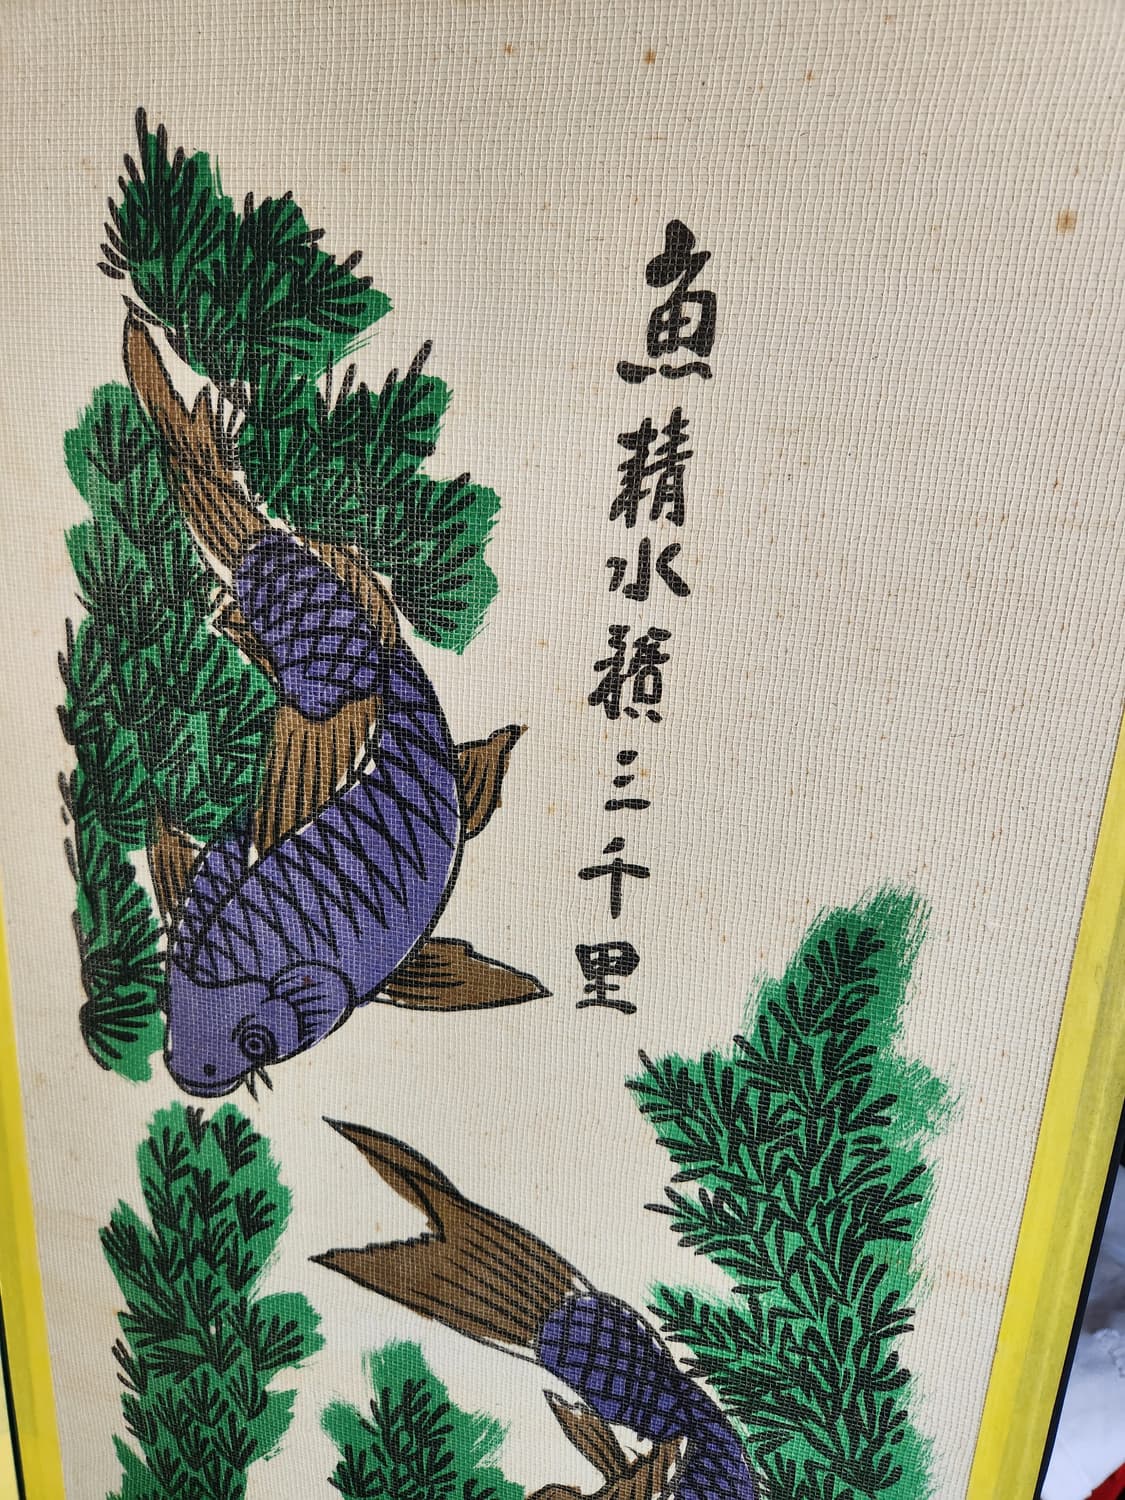 魚精水積三千里